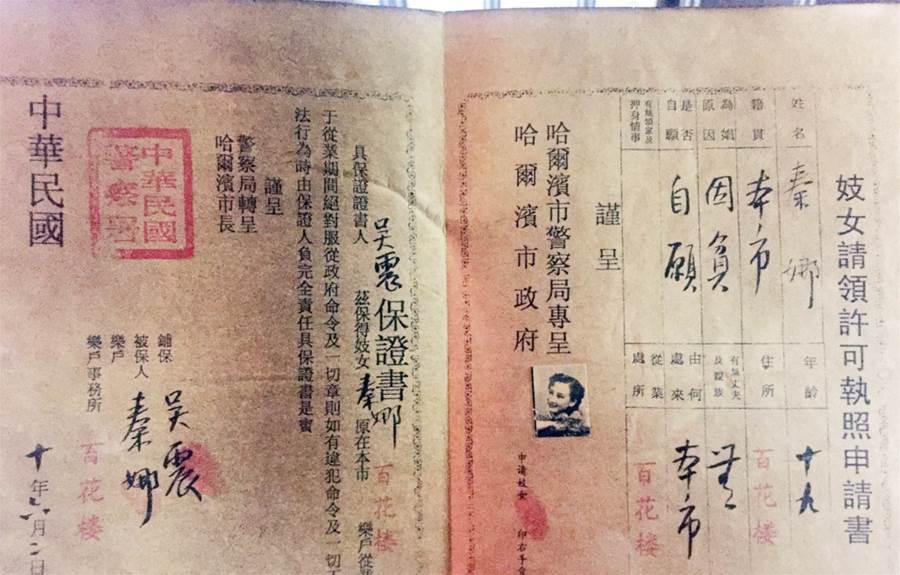 妓女請領許可執照申請書
姓名 秦娜 年齡 十九
籍貫 本市 住所 百花楼
為娼原因 因負 有無丈夫及親族 無
是否自願 自願 由何處來 本市
有無領家及押身情事 從業處所 百花楼
謹呈
哈爾濱市警察局專呈
哈爾濱市政府
申请妓女 印右手食
保證書
具保證書人 吴震 茲保得妓女 秦娜 原在本市 百花楼 樂戶從業
于從業期間絕對服從政府命令及一切章則如有違犯命令及一切不
法行為時由保證人負完全責任具保證書是實
謹呈
警察局轉呈
哈爾濱市長
鋪保 吴震
被保人 秦娜
樂戶
樂戶事務所 百花楼
中華民國
十年 六月二日
中華民國
警察署